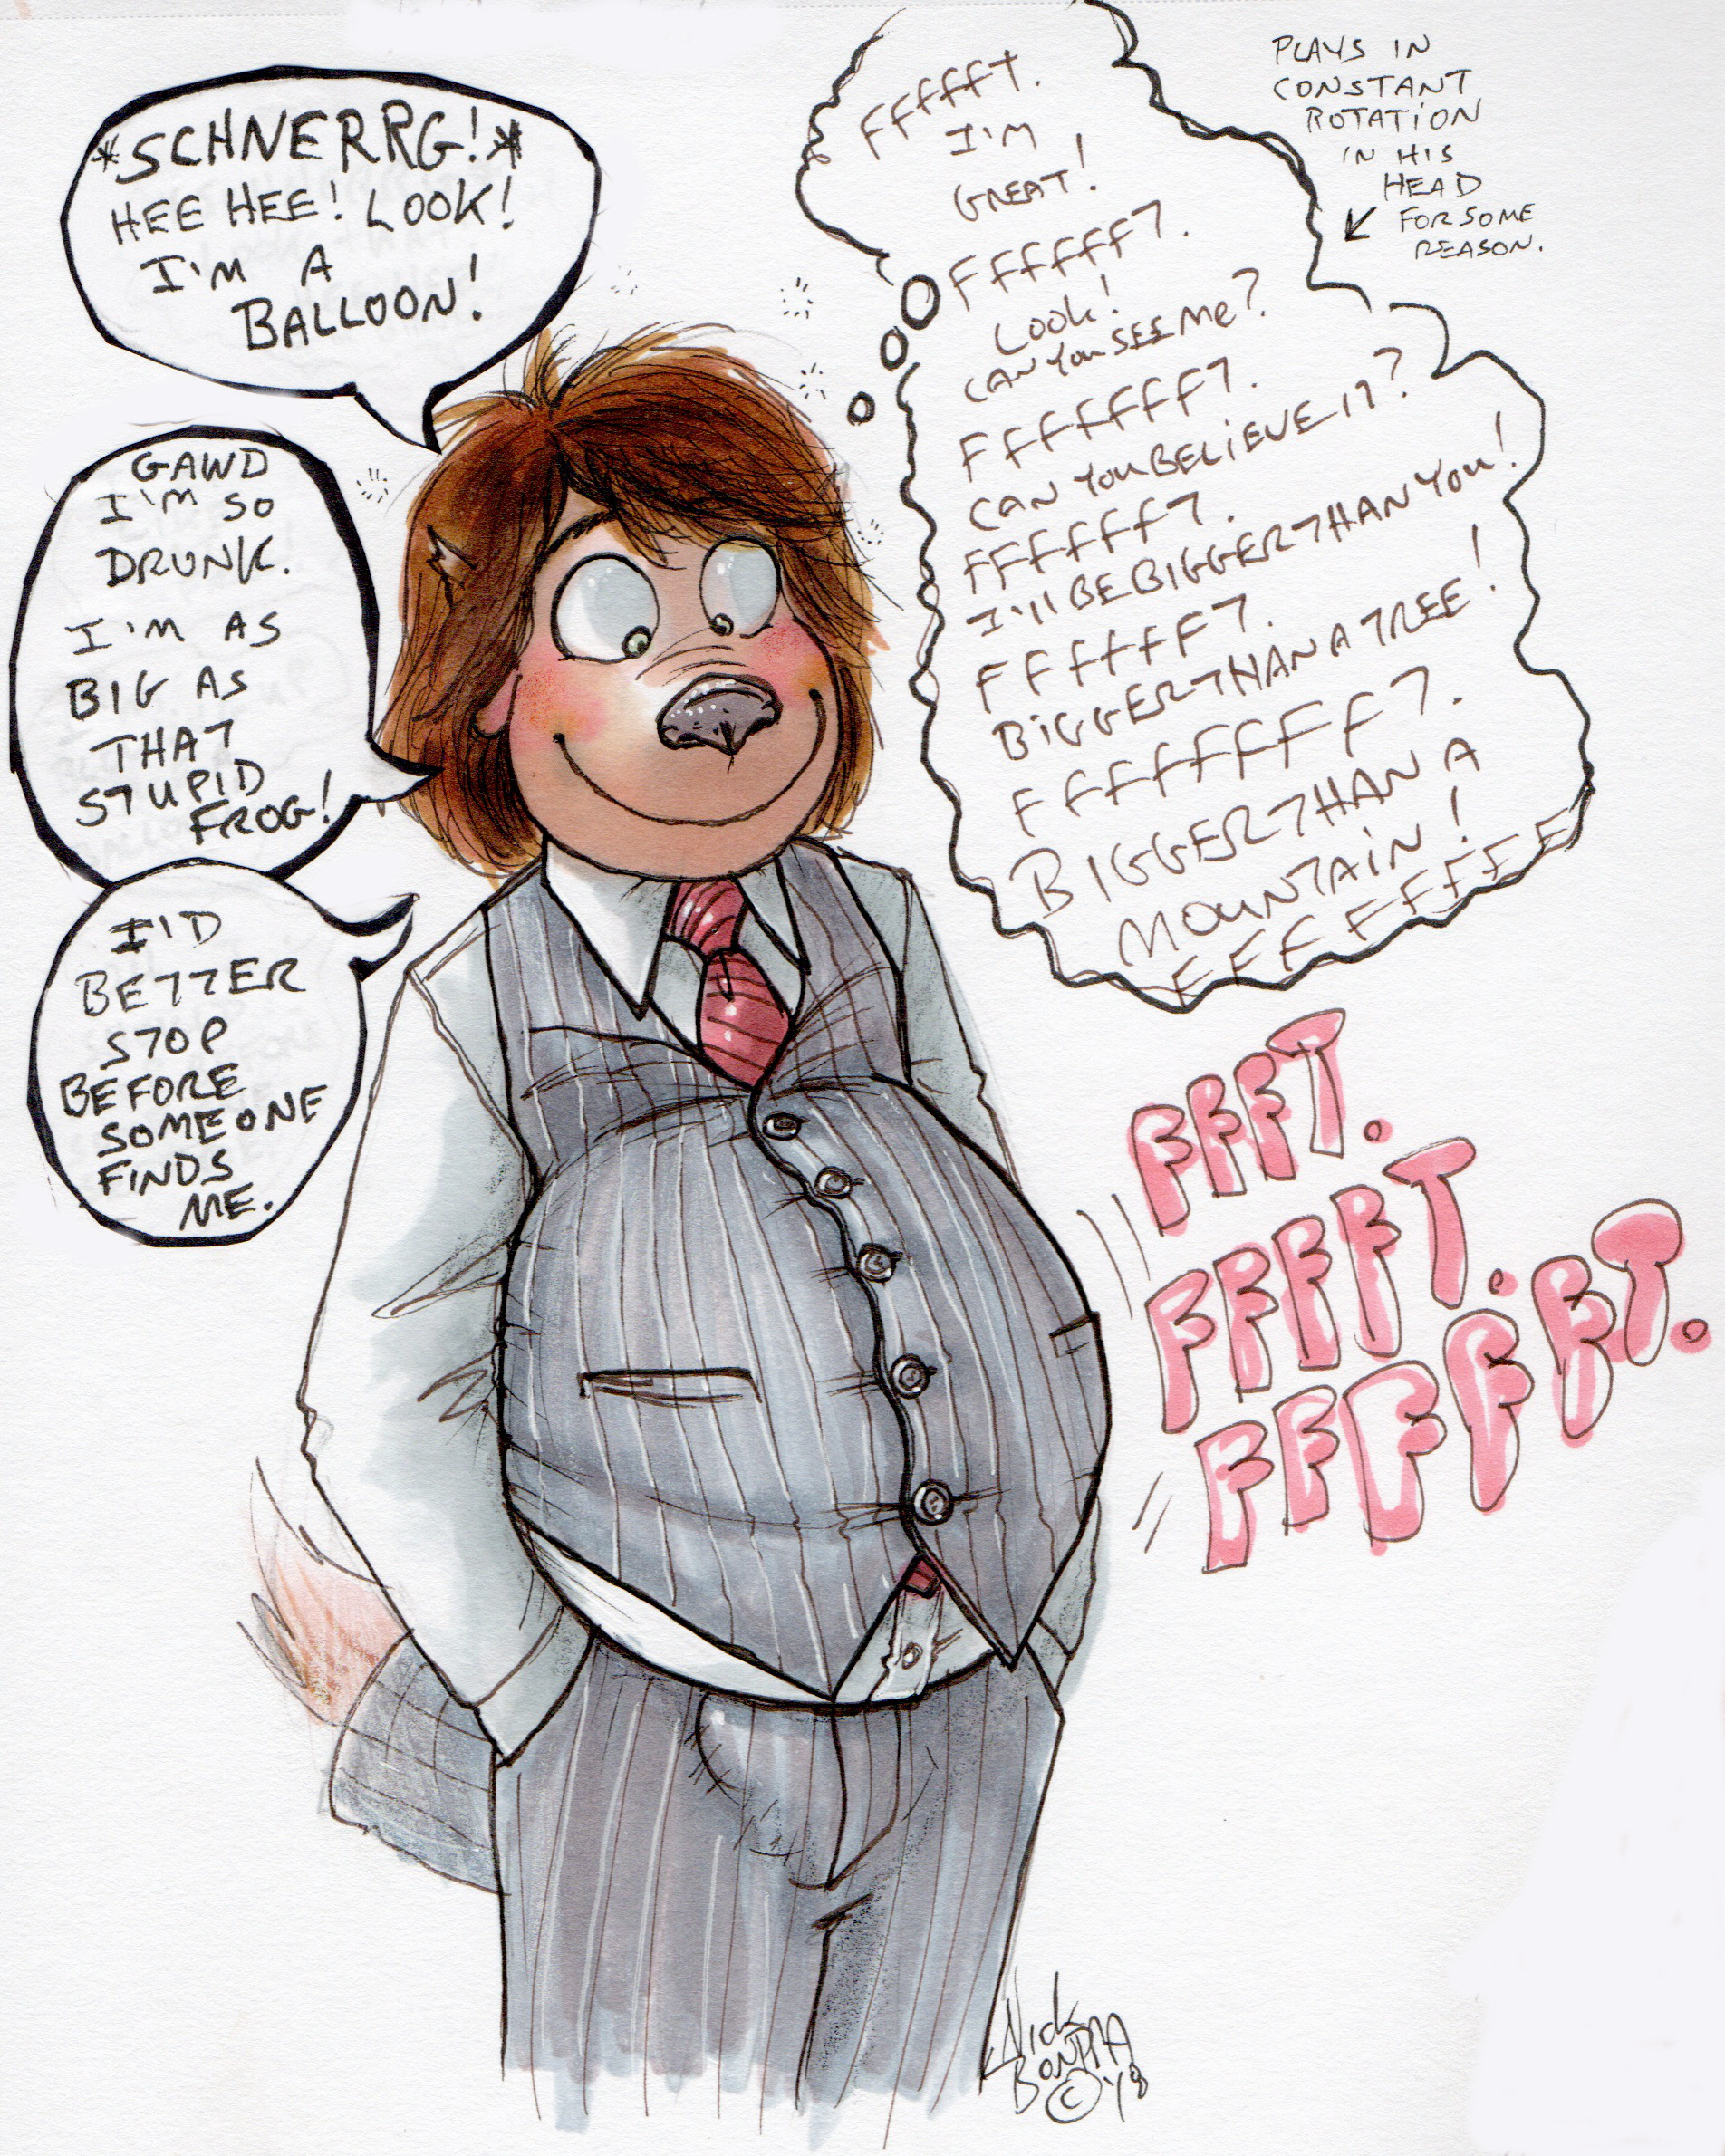 *SCHNERRG!*
HEE HEE! LOOK!
I'M A
BALLOON!
GAWD
I'M SO
DRUNK.
I'M AS
BIG AS
THAT
STUPID
FROG!
I'D
BETTER
STOP
BEFORE
SOMEONE
FINDS
ME.
FFFFFT.
I'M
GREAT!
FFFFFFFT.
LOOK!
CAN YOU SEE ME?
FFFFFFFFT.
CAN YOU BELIEVE IT?
FFFFFFFT.
I'll BE BIGGER THAN YOU!
FFFFFFFT.
BIGGER THAN A TREE!
FFFFFFFFFT.
BIGGER THAN A
MOUNTAIN!
FFFFFFFFFF
PLAYS IN
CONSTANT
ROTATION
IN HIS
HEAD
FOR SOME
REASON.
FFFT.
FFFFT.
FFFFFFT.
Nick
BONDRA